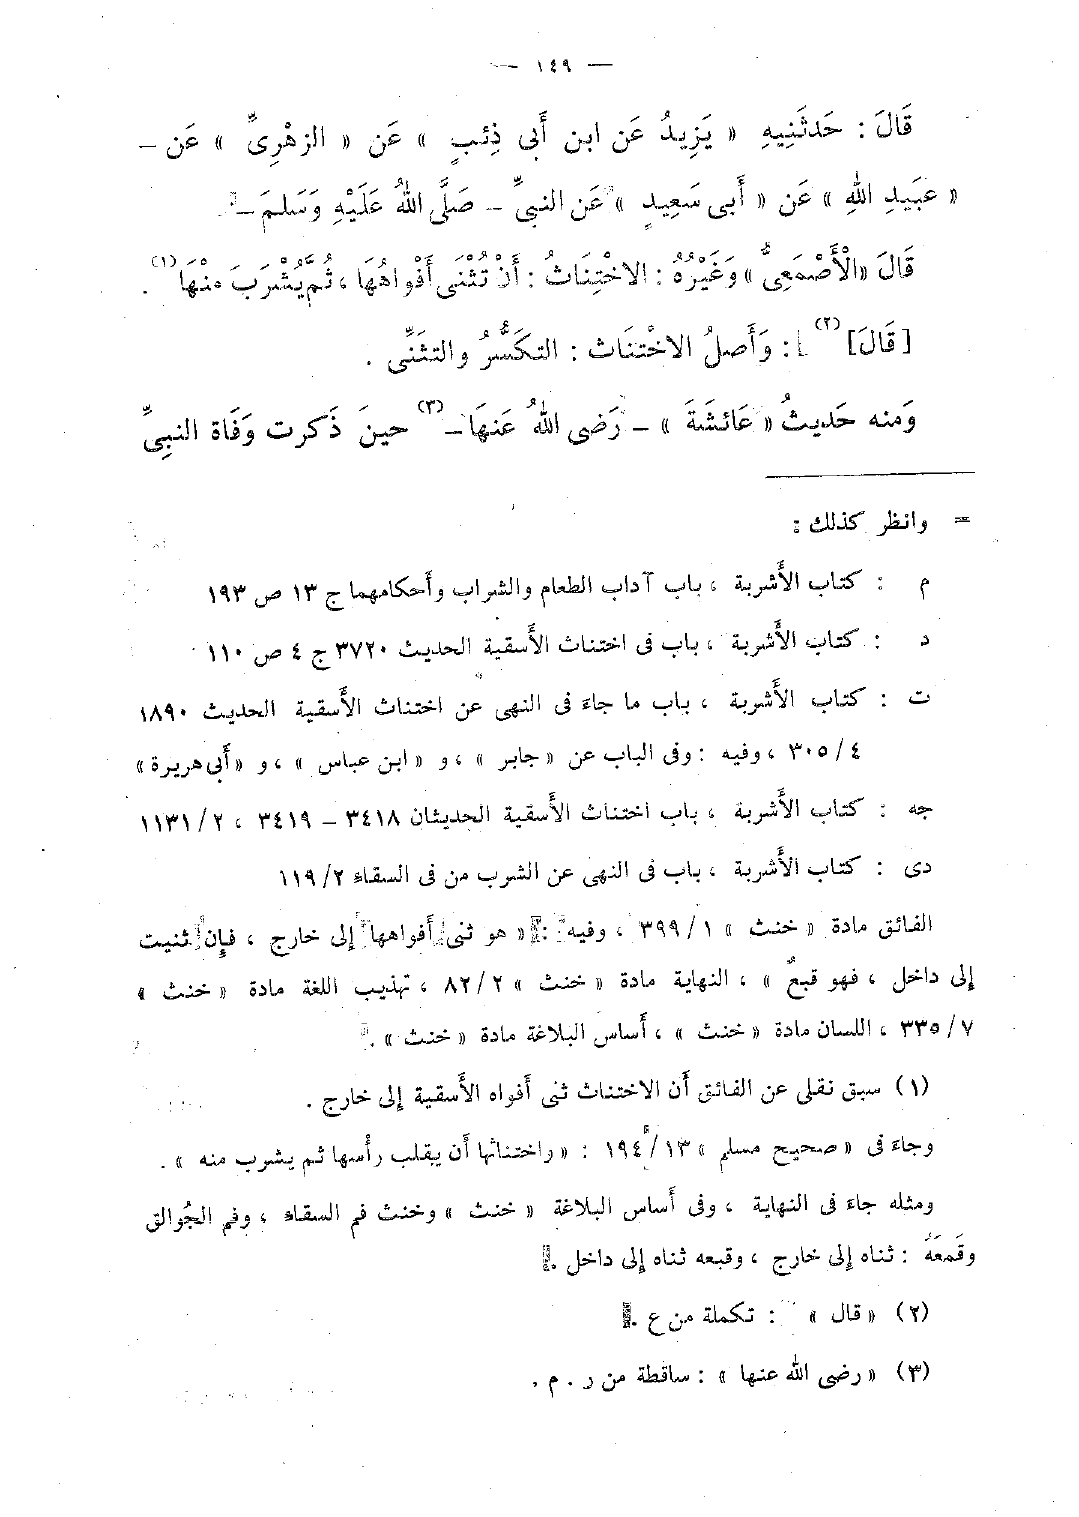 — ١٤٩ —
قَالَ : حَدثَنِيهِ « يَزِيدُ عَن ابن أَبى ذِئبٍ » عَن « الزهْرِىِّ » عَن —
« عبَيدِ اللهِ » عَن « أَبى سَعِيدٍ » عَن النبىِّ — صَلَّى اللهُ عَلَيْهِ وَسَلمَ —
قَالَ « الْأَصْمَعِىُّ » وَغَيْرُهُ : الاخْتِنَاثُ : أَنْ تُثْنَى أَفْواهُهَا ، ثُم يُشْرَبَ منْهَا (١) .
[ قَالَ ] (٢) : وَأَصلُ الاخْتنَاث : التكَسُّرُ والتثَنِّى .
وَمنه حَديثُ « عَائشَةَ » — رَضى اللهُ عَنهَا — (٣) حينَ ذَكرت وَفَاة النبِىِّ
= وانظر كذلك :
م : كتاب الأَشربة ، باب آداب الطعام والشراب وأَحكامهما ج ١٣ ص ١٩٣
د : كتاب الأَشربة ، باب فى اختناث الأَسقية الحديث ٣٧٢٠ ج ٤ ص ١١٠
ت : كتاب الأَشربة ، باب ما جاءَ فى النهى عن اختناث الأَسقية الحديث ١٨٩٠
٤ /٣٠٥ ، وفيه : وفى الباب عن « جابر » ، و « ابن عباس » ، و « أَبى هريرة »
جه : كتاب الأَشربة ، باب اختناث الأَسقية الحديثان ٣٤١٨ — ٣٤١٩ ، ٢/ ١١٣١
دى : كتاب الأَشربة ، باب فى النهى عن الشرب من فى السقاء ٢/ ١١٩
الفائق مادة « خنث » ١/ ٣٩٩ ، وفيه : « هو ثنى أَفواهها إلى خارج ، فإن ثنيت
إلى داخل ، فهو قبعٌ » ، النهاية مادة « خنث » ٢/ ٨٢ ، تهذيب اللغة مادة « خنث »
٧ /٣٣٥ ، اللسان مادة « خنث » ، أَساس البلاغة مادة « خنث » .
(١) سبق نقلى عن الفائق أَن الاختناث ثنى أَفواه الأَسقية إلى خارج .
وجاءَ فى « صحيح مسلم » ١٣/ ١٩٤ : « واختناثها أَن يقلب رأْسها ثم يشرب منه » .
ومثله جاءَ فى النهاية ، وفى أَساس البلاغة « خنث » وخنث فم السقاء ، وفم الجُوالق
وقَمعَهُ : ثناه إلى خارج ، وقبعه ثناه إلى داخل .
(٢) « قال » : تكملة من ع .
(٣) « رضى الله عنها » : ساقطة من ر . م .